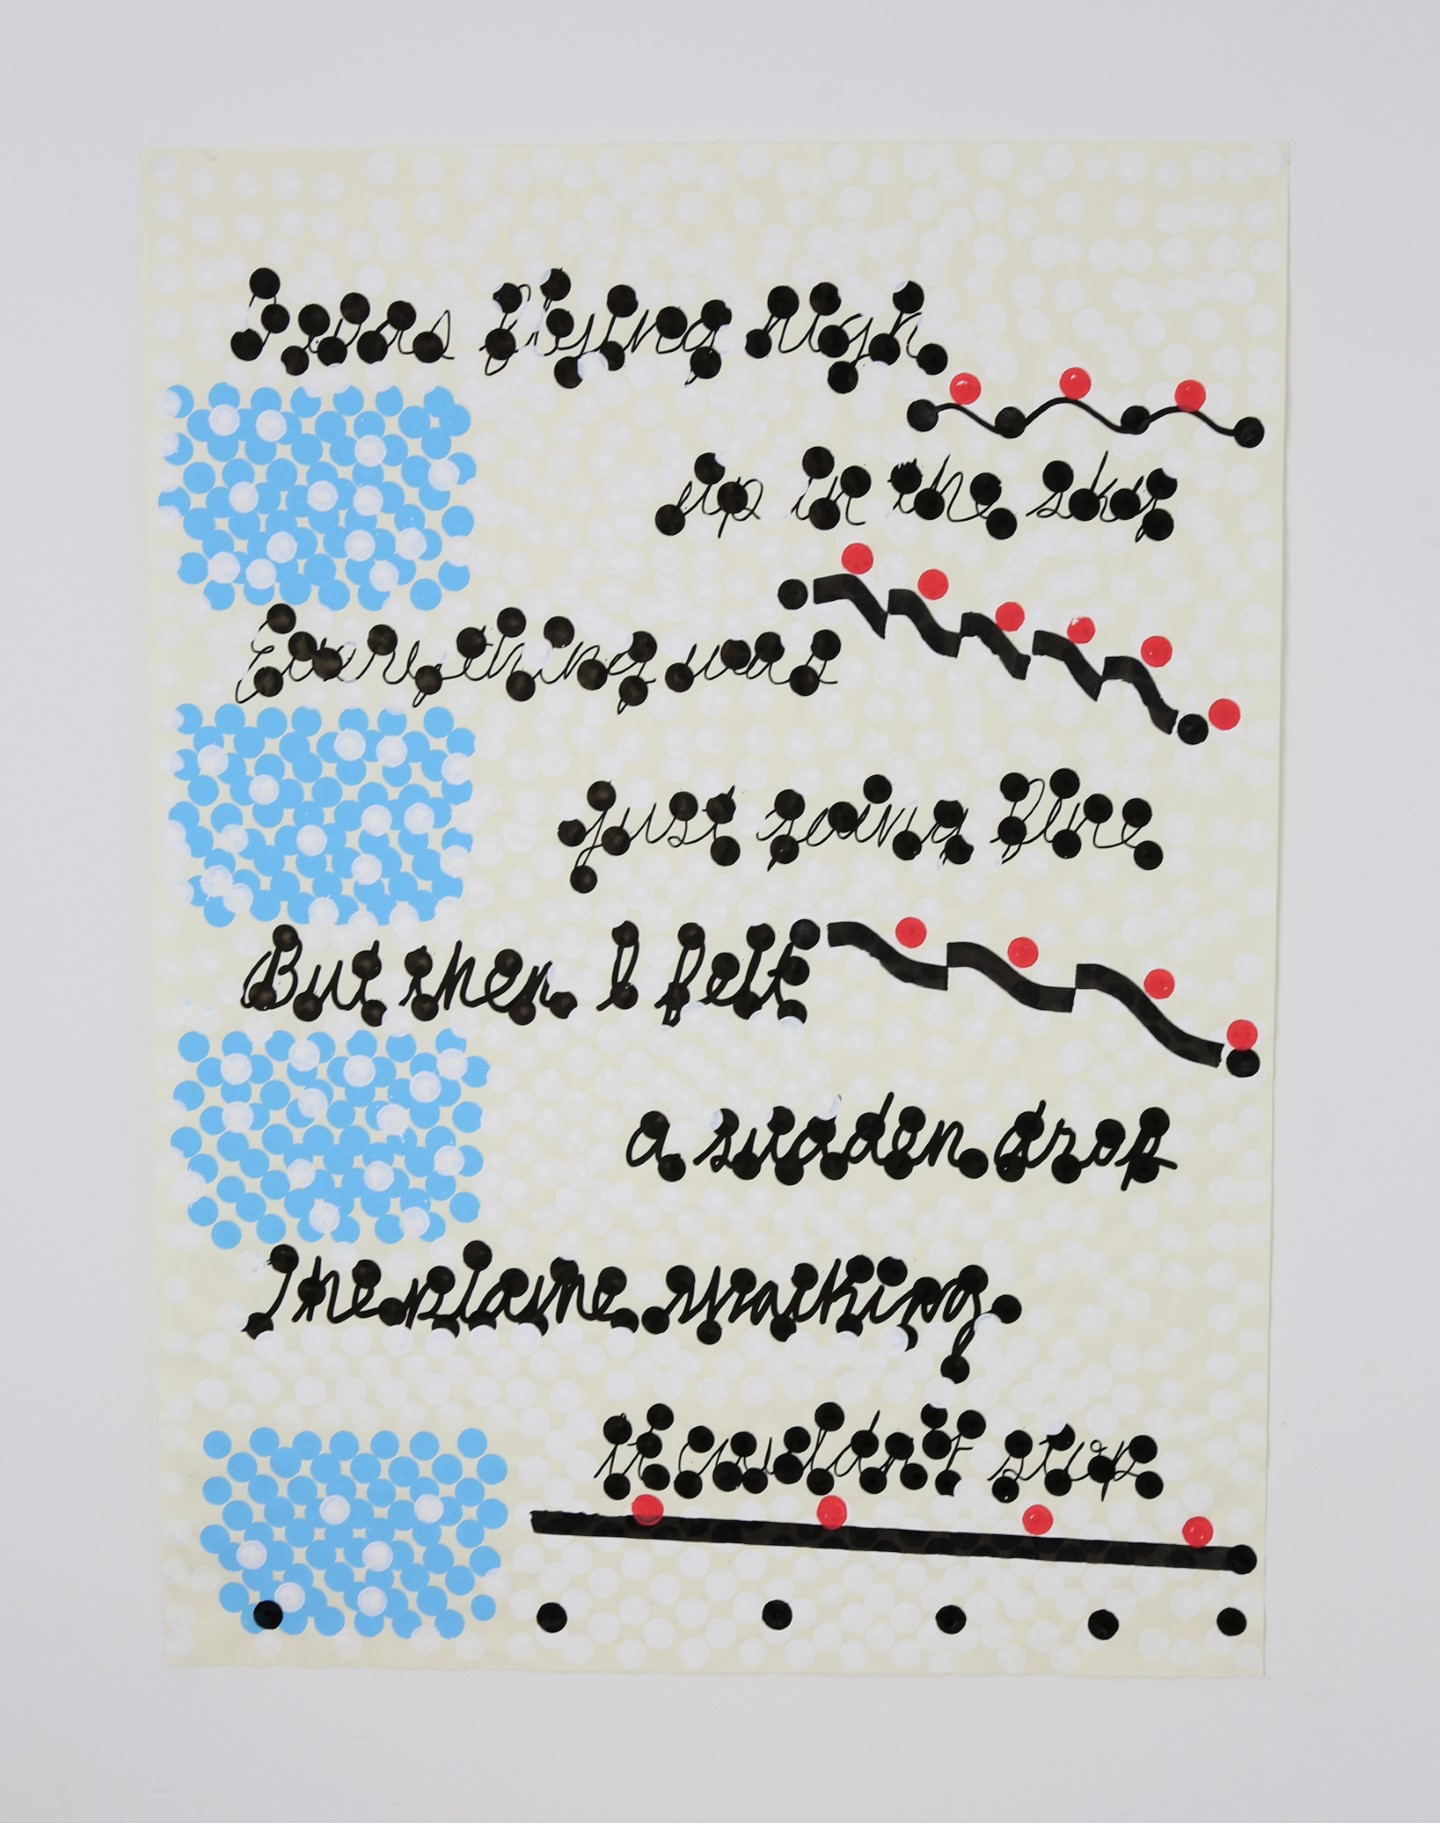 I was flying high
up in the sky
Everything was
just going fine
But then I felt
a sudden drop
The plane shaking
it couldn't stop